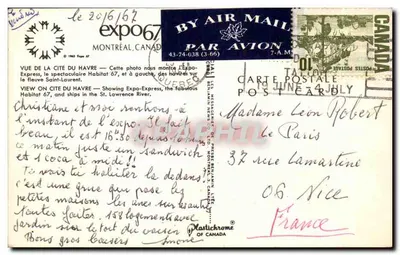 le 20/6/67
expo67
MONTRÉAL, CANADA
© 1963 Expo 67
BY AIR MAIL
PAR AVION
43-74-638 (3-66)
CANADA
10
POSTES POSTAGE
VUE DE LA CITE DU HAVRE — Cette photo nous montre l'Expo-
Express, le spectaculaire Habitat 67, et à gauche, des navires sur
le fleuve Saint-Laurent.
VIEW ON CITE DU HAVRE — Showing Expo-Express, the fabulous
Habitat 67, and ships in the St. Lawrence River.
CARTE POSTALE
POST CARD
JUNE 24 JULY
Christiane et moi rentrons à
l'instant de l'expo. Il fait
beau, il est 16h30 depuis
ce matin juste un sandwich
et 1 coca à midi!!
Tu vois tu habiter là dedans!
c'est une grue qui pose les
petites maisons les unes sur les
toutes faites. 158 logements avec
jardin sur le toit du voisin
Bons gros baisers Simone
Madame Léon Robert
Le Paris
37 rue Lamartine
06 Nice
France
Plastichrome
OF CANADA